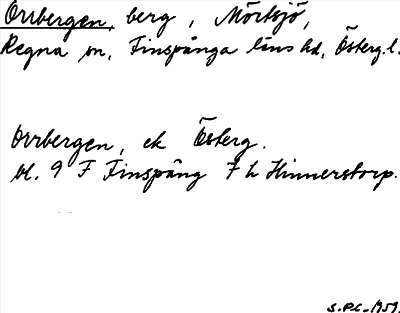 Orrbergen, berg, Mörtsjö,
Regna sn, Finspånga läns hd, Österg. l.
Orrbergen, ek Österg.
bl. 9 F Finspång 7 h Hinnerstorp.
S.P.C. 1959.